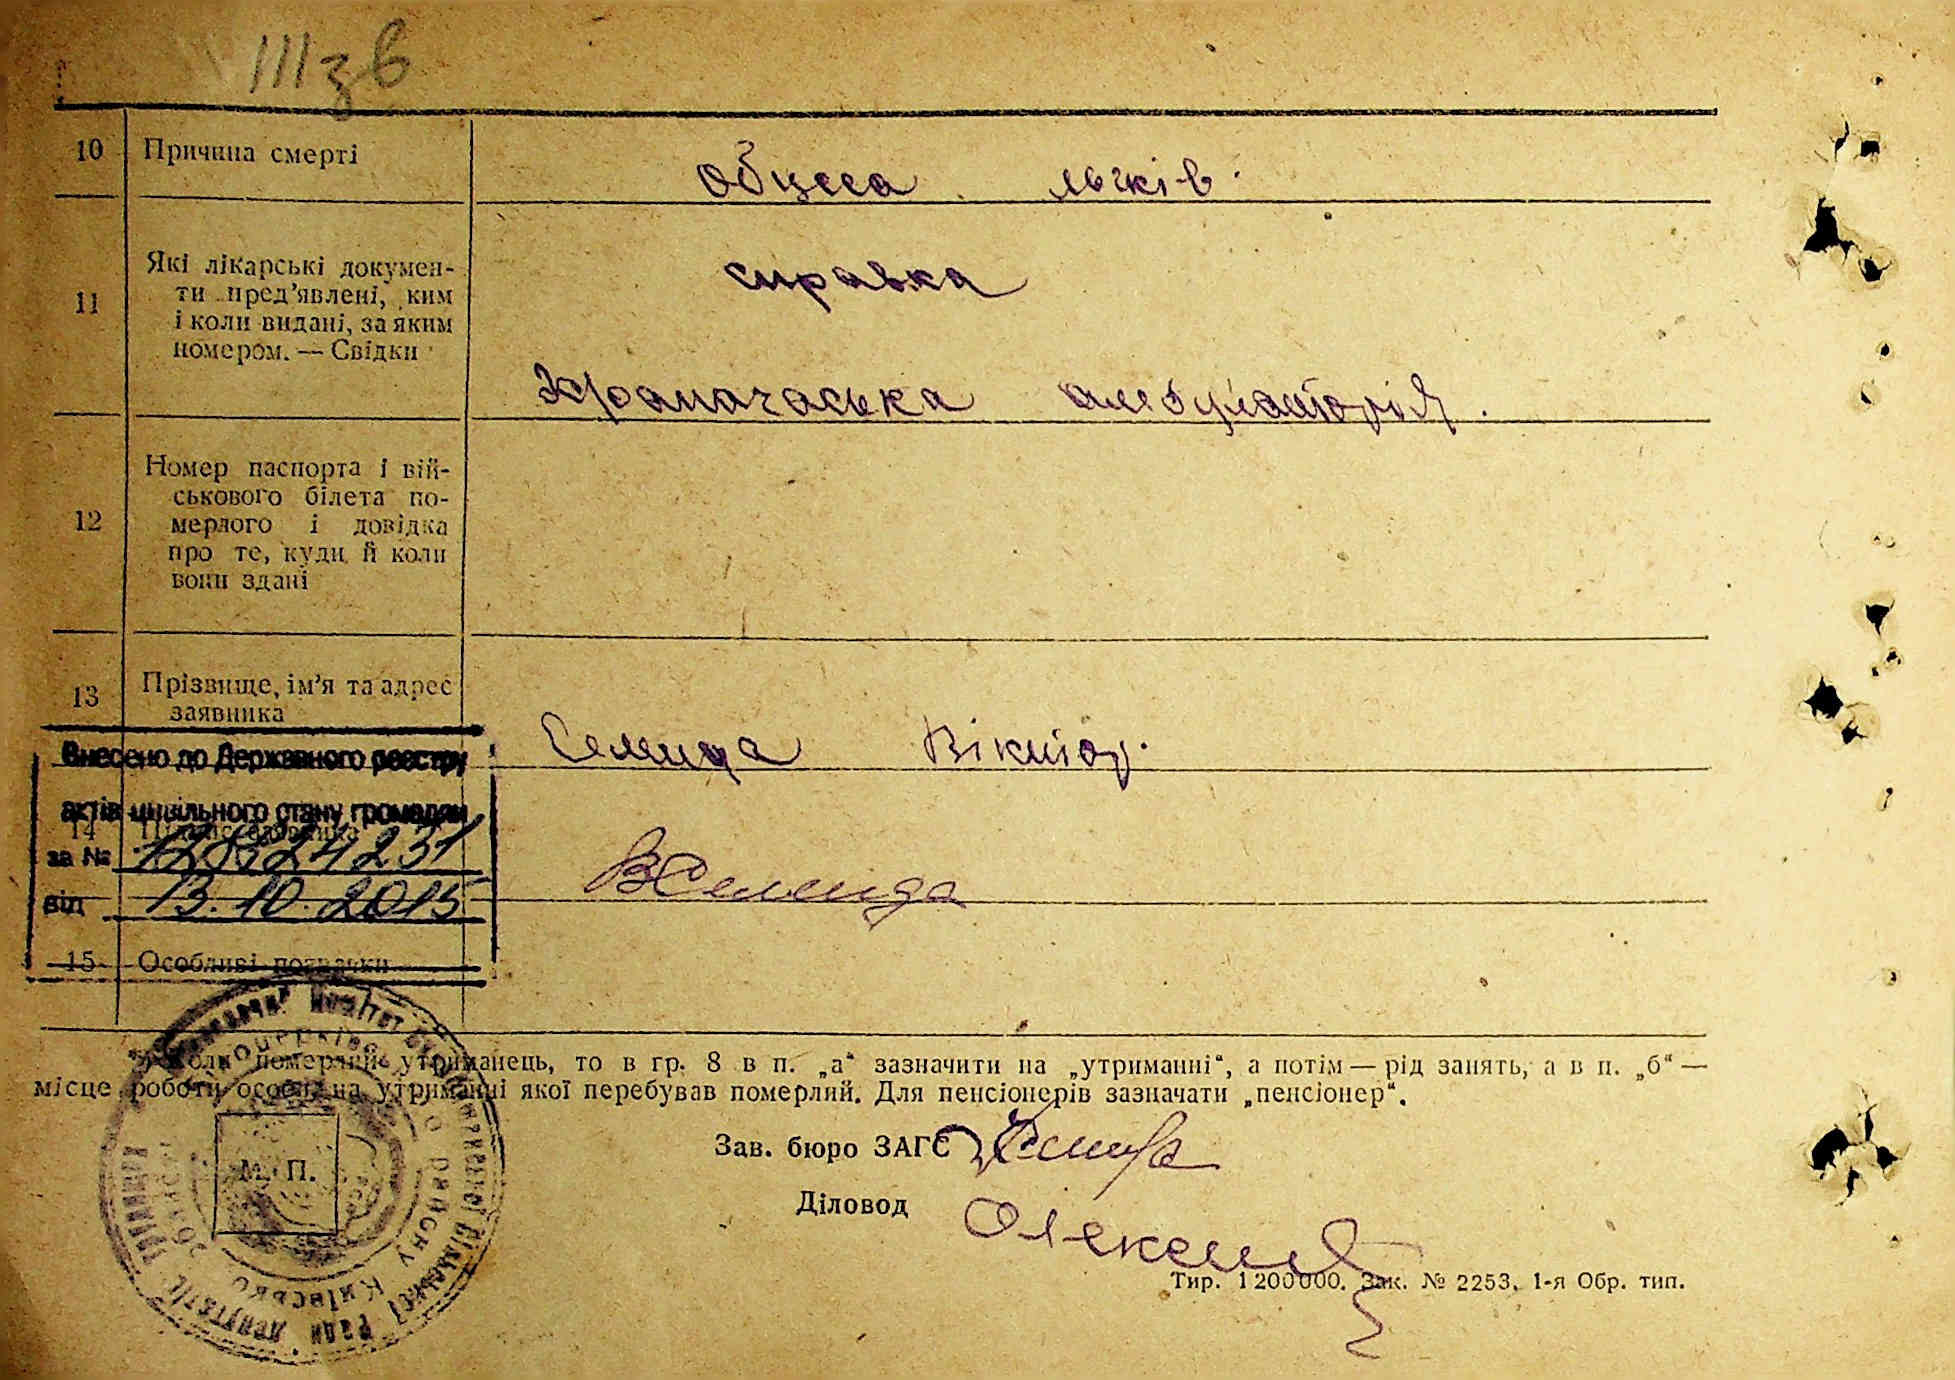 III зв
10 Причина смерті
Обцеса льгків.
11 Які лікарські докумен-
ти пред’явлені, ким
і коли видані, за яким
номером. — Свідки
справка
амбулаторія.
12 Номер паспорта і вій-
ськового білета по-
мерлого і довідка
про те, куди й коли
вони здані
13 Прізвище, ім’я та адрес
заявника
Семида Віктор.
Внесено до Державного реєстру
актів цивільного стану громадян
14 Підпис заявника
за №
від 13.10.2015
ВСемида
15 Особливі позначки
Коли померлий утриманець, то в гр. 8 в п. „а“ зазначити на „утриманні“, а потім — рід занять, а в п. „б“ —
місце роботи особи, на утриманні якої перебував померлий. Для пенсіонерів зазначати „пенсіонер“.
М. П.
Зав. бюро ЗАГС
Діловод
Тир. 1200000. Зак. № 2253. 1-я Обр. тип.